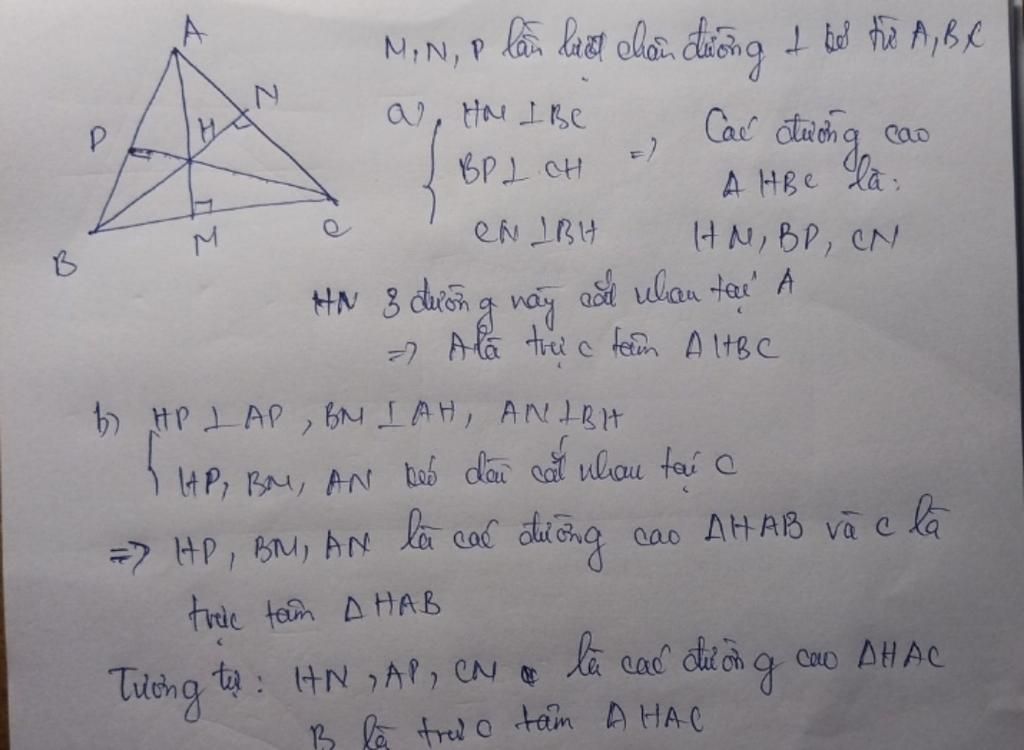 A
N
P
H
M
C
B
M, N, P lần lượt chân đường ⊥ kẻ từ A, B, C
a) HM ⊥ BC
BP ⊥ CH
CN ⊥ BH
=> Các đường cao
Δ HBC là:
HM, BP, CN
HN 3 đường này cắt nhau tại A
=> A là trực tâm Δ HBC
b) HP ⊥ AP, BM ⊥ AH, AN ⊥ BH
HP, BM, AN kéo dài cắt nhau tại C
=> HP, BM, AN là các đường cao Δ HAB và C là
trực tâm Δ HAB
Tương tự: HN, AP, CN là các đường cao Δ HAC
B là trực tâm Δ HAC